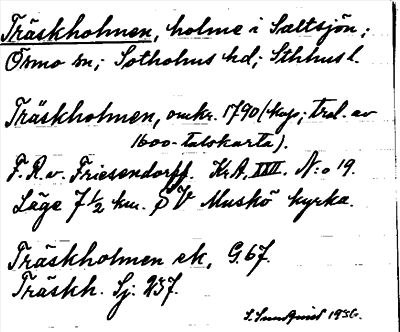 Träskholmen, holme i Saltsjön;
Ösmo sn; Sotholms hd; Sthlms l.
Träskholmen, omkr. 1790 (kop; trol. av
1600-talskarta).
F. R. v. Friesendorff. Kr.A. XVII. N:o 19.
Läge 7 1/2 km. SV Muskö kyrka.
Träskholmen ek, G. 67.
Träskh. Sj. 257.
S. Sundqvist 1936.